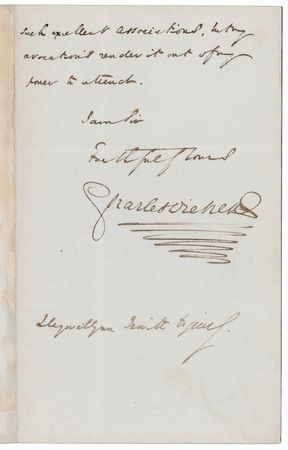 such excellent associations, but my
avocations render it out of my
power to attend.
I am Sir
Faithfully Yours
Charles Dickens
Llewellynn Esquire.